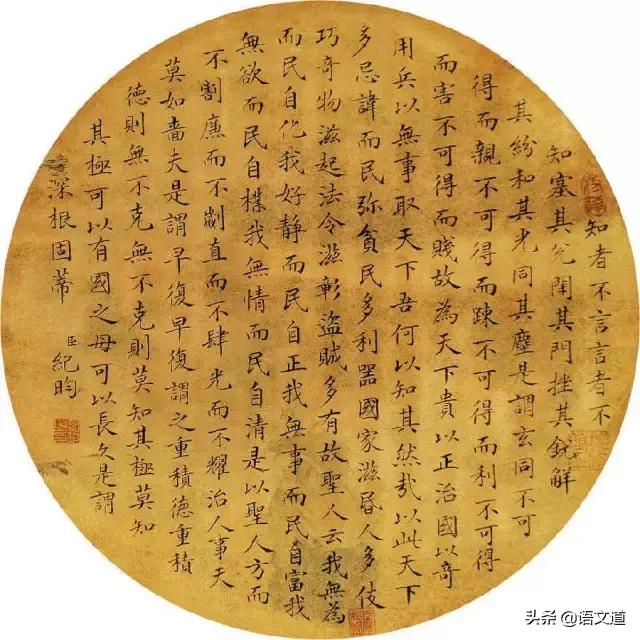 知者不言言者不
知塞其兌閉其門挫其銳解
其紛和其光同其塵是謂玄同不可
得而親不可得而踈不可得而利不可得
而害不可得而賤故為天下貴以正治國以奇
用兵以無事取天下吾何以知其然哉以此天下
多忌諱而民弥貧民多利器國家滋昏人多伎
巧奇物滋起法令滋彰盜賊多有故聖人云我無為
而民自化我好靜而民自正我無事而民自富我
無欲而民自樸我無情而民自清是以聖人方而
不割廉而不劌直而不肆光而不耀治人事天
莫如嗇夫是謂早復早復謂之重積德重積
德則無不克無不克則莫知其極莫知
其極可以有國之母可以長久是謂
深根固蒂
臣紀昀
头条 @语文道